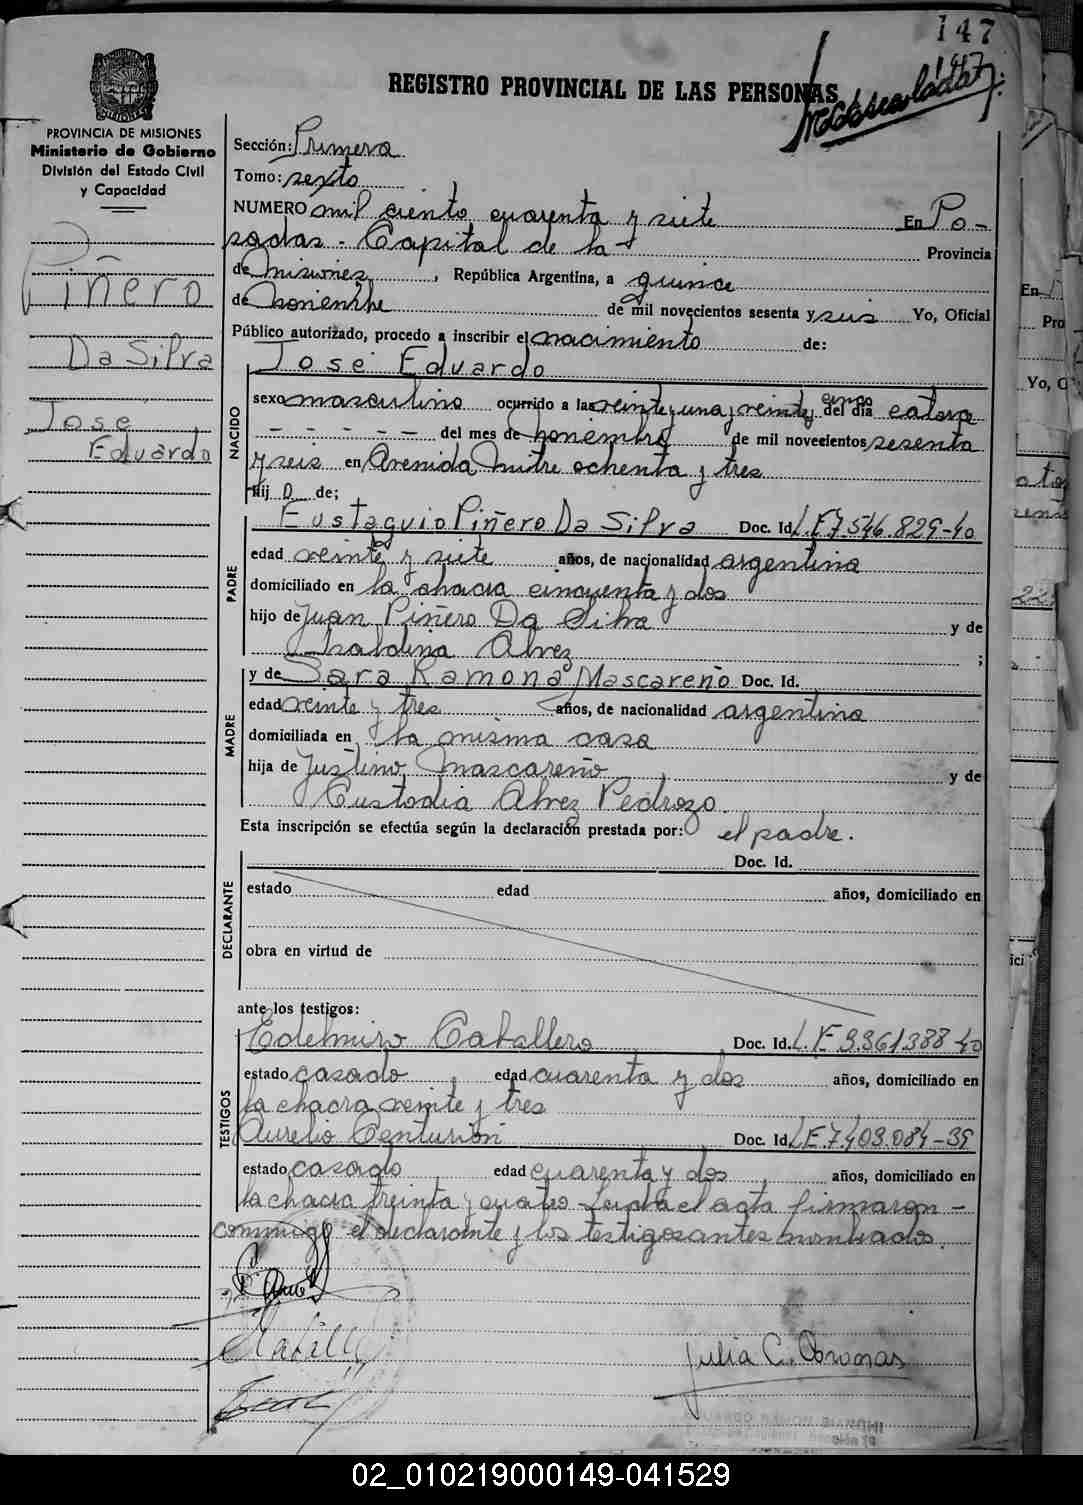 147
1147
REGISTRO PROVINCIAL DE LAS PERSONAS
PROVINCIA DE MISIONES
Ministerio de Gobierno
División del Estado Civil
y Capacidad
Piñero
Da Silva
Jose
Eduardo
Sección: Primera
Tomo: sexto
NUMERO mil ciento cuarenta y siete En Po-
sadas - Capital de la Provincia
de Misiones, República Argentina, a quince
de noviembre de mil novecientos sesenta y seis Yo, Oficial
Público autorizado, procedo a inscribir el nacimiento de:
José Eduardo
NACIDO
sexo masculino ocurrido a las veinte y una y veinte y cinco del día catorce
- - - - - - del mes de noviembre de mil novecientos sesenta
y seis en Avenida Mitre ochenta y tres
Hij o de;
PADRE
Eustaquio Piñero Da Silva Doc. Id. L.E 7.546.829-40
edad veinte y siete años, de nacionalidad argentina
domiciliado en la chacra cincuenta y dos
hijo de Juan Piñero Da Silva y de
Alvez ;
MADRE
y de Sara Ramona Mascareño Doc. Id.
edad veinte y tres años, de nacionalidad argentina
domiciliada en la misma casa
hija de Justino Mascareño y de
Custodia Alvez Pedrozo
Esta inscripción se efectúa según la declaración prestada por: el padre.
DECLARANTE
Doc. Id.
estado edad años, domiciliado en
obra en virtud de
ante los testigos:
TESTIGOS
Edelmiro Caballero Doc. Id. L.E 3.361.388-40
estado casado edad cuarenta y dos años, domiciliado en
la chacra veinte y tres
Aurelio Centurion Doc. Id. L.E.7.403.084-39
estado casado edad cuarenta y dos años, domiciliado en
la chacra treinta y cuatro - Leída el acta firmaron -
conmigo el declarante y los testigos antes nombrados.
Julia C.
En
Pro
Yo, O
02_010219000149-041529